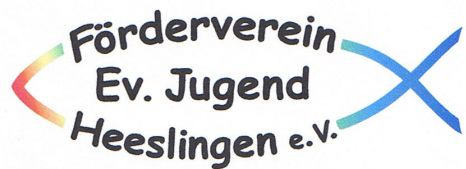 Förderverein
Ev. Jugend
Heeslingen e.V.